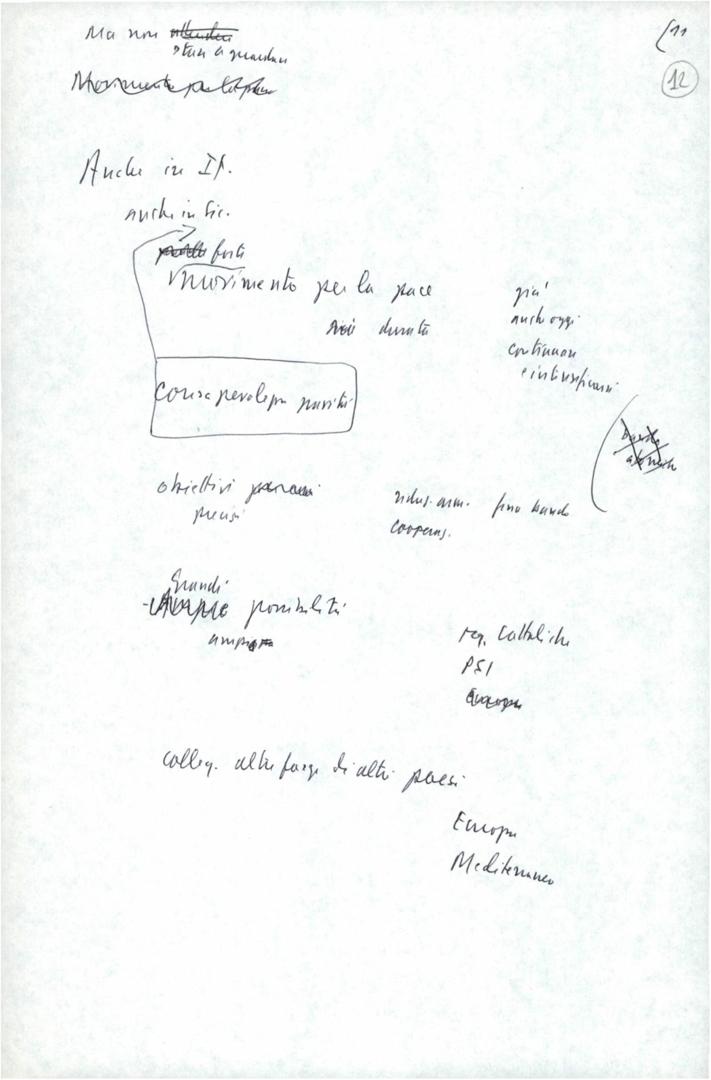 Ma non attendere
stare a guardare
(11
12
Movimento per la pace
Anche in It.
anche in Sic.
forte
movimento per la pace
già
anche oggi
durata
continuare
e intensificarsi
Consapevolezza novità
obiettivi
precisi
riduz. arm. fino bando
cooperaz.
Grandi
possibilità
org. Cattoliche
PSI
Europa
colleg. altre forze di altri paesi
Europa
Mediterraneo